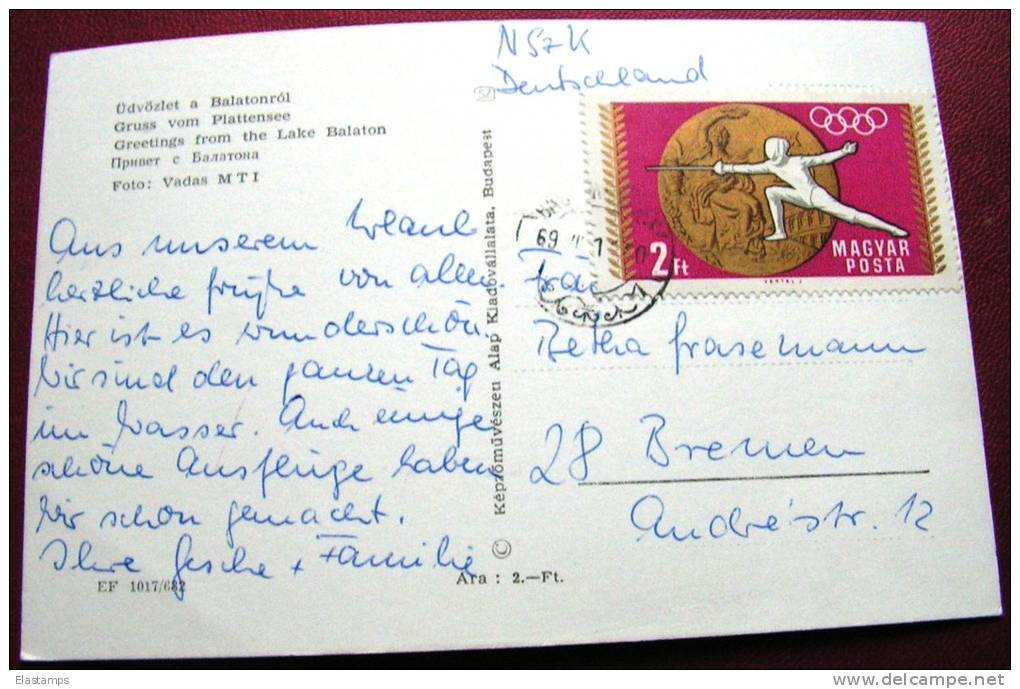 Üdvözlet a Balatonról
Gruss vom Plattensee
Greetings from the Lake Balaton
Привет с Балатона
Foto: Vadas MTI
Aus unserem Urlaub
herzliche Grüße von allen.
Hier ist es wunderschön.
Wir sind den ganzen Tag
im Wasser. Auch einige
schöne Ausflüge haben
wir schon gemacht.
Ihre Gesche + Familie
EF 1017/682
Ára : 2.—Ft.
© Képzőművészeti Alap Kiadóvállalata, Budapest
NSzK
Deutschland
2 Ft
MAGYAR
POSTA
69
Frau
Betha Grasemann
28 Bremen
Andréstr. 12
Elastamps
delcampe.net